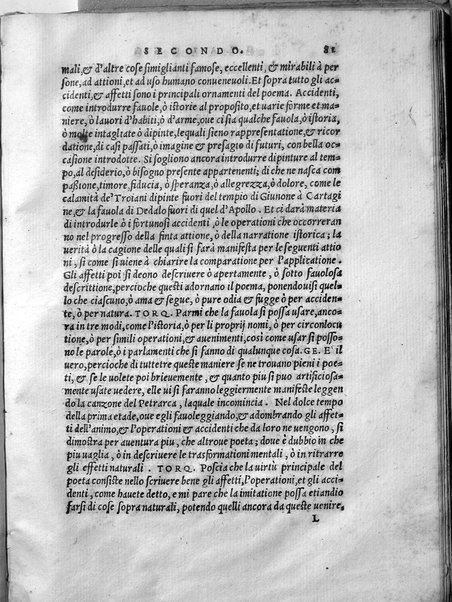 SECONDO. 81
mali, & d'altre cose simiglianti famose, eccellenti, & mirabili à per
sone, ad attioni, et ad uso humano conueneuoli. Et sopra tutto gli ac=
cidenti, & affetti sono i principali ornamenti del poema. Accidenti,
come introdurre fauole, ò istorie al proposito, et uarie forme et ma=
niere, ò lauori d'habiti, ò d'arme, oue ci sia qualche fauola, ò istoria,
ò molte intagliate ò dipinte, lequali sieno rappresentatione, & ricor
datione, di casi passati, ò imagine & presagio di futuri, con bella oc=
casione introdotte. Si sogliono ancora introdurre dipinture al tem=
po, al desiderio, ò bisogno presente appartenenti; di che ne nasca com
passione, timore, fiducia, ò speranza, ò allegrezza, ò dolore, come le
calamità de' Troiani dipinte fuori del tempio di Giunone à Cartagi
ne, & la fauola di Dedalo fuori di quel d'Apollo. Et ci darà materia
di introdurle ò i fortunosi accidenti, ò le operationi che occorreran
no nel progresso della finta attione, ò della narratione istorica; la
uerità ò la cagione delle quali si farà manifesta per le seguenti attio
ni, si come si uiene à chiarire la comparatione per l'applicatione.
Gli affetti poi si deono descriuere ò apertamente, ò sotto fauolosa
descrittione, percioche questi adornano il poema, ponendouisi quel=
lo che ciascuno, ò ama & segue, ò pure odia & fugge ò per acciden=
te, ò per natura. TORQ. Parmi che la fauola si possa usare, anco=
ra in tre modi, come l'istoria, ò per li proprij nomi, ò per circonlocu
tione, ò per simili operationi, & auenimenti, così come usar si posso=
no le parole, ò i parlamenti che si fanno di qualunque cosa. GE. E' il
uero, percioche di tutte tre queste maniere se ne trouano pieni i poe=
ti, & se le uolete poi brieuemente, & quanto piu si puo artificiosa=
mente usate uedere, elle ui si faranno leggiermente manifeste leggen
do la canzone del Petrarca, laquale incomincia. Nel dolce tempo
della prima etade, oue egli fauoleggiando, & adombrando gli affet=
ti dell'animo, & l'operationi & accidenti che da loro ne uengono, si
dimostra per auentura piu, che altroue poeta; doue è dubbio in che
piu uaglia, ò in descriuere le trasformationi mentali, ò in ritrarre
gli effetti naturali. TORQ. Poscia che la uirtù principale del
poeta consiste nello scriuere bene gli affetti, l'operationi, et gli acci=
denti, come hauete detto, e mi pare che la imitatione possa etiandio
farsi di cose sopra naturali, potendo quelli ancora da queste uenire,
L